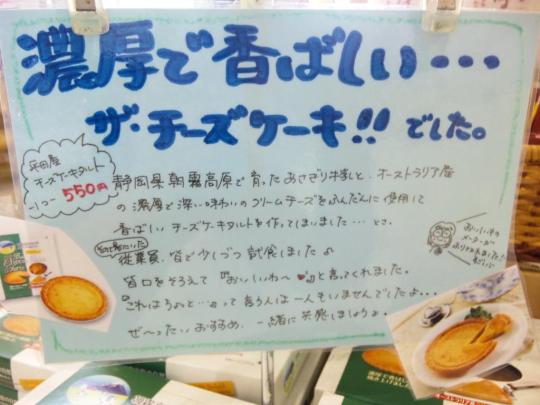 濃厚で香ばしい・・・
ザ・チーズケーキ!!でした。
平田屋
チーズケーキタルト
550円
静岡県朝霧高原で育ったあさぎり牛乳と、オーストラリア産
の濃厚で深い味わいのクリームチーズをふんだんに使用して
香ばしいチーズケーキタルトを作ってしまいました…とさ。
従業員、皆で少しづつ試食しました♪
皆口をそろえて『おいしいわ〜♥』と言ってくれました。
『これはちょっと…』って言う人は一人もいませんでしたよ…
ぜ〜ったいおすすめ。一緒に笑顔しましょうよ。